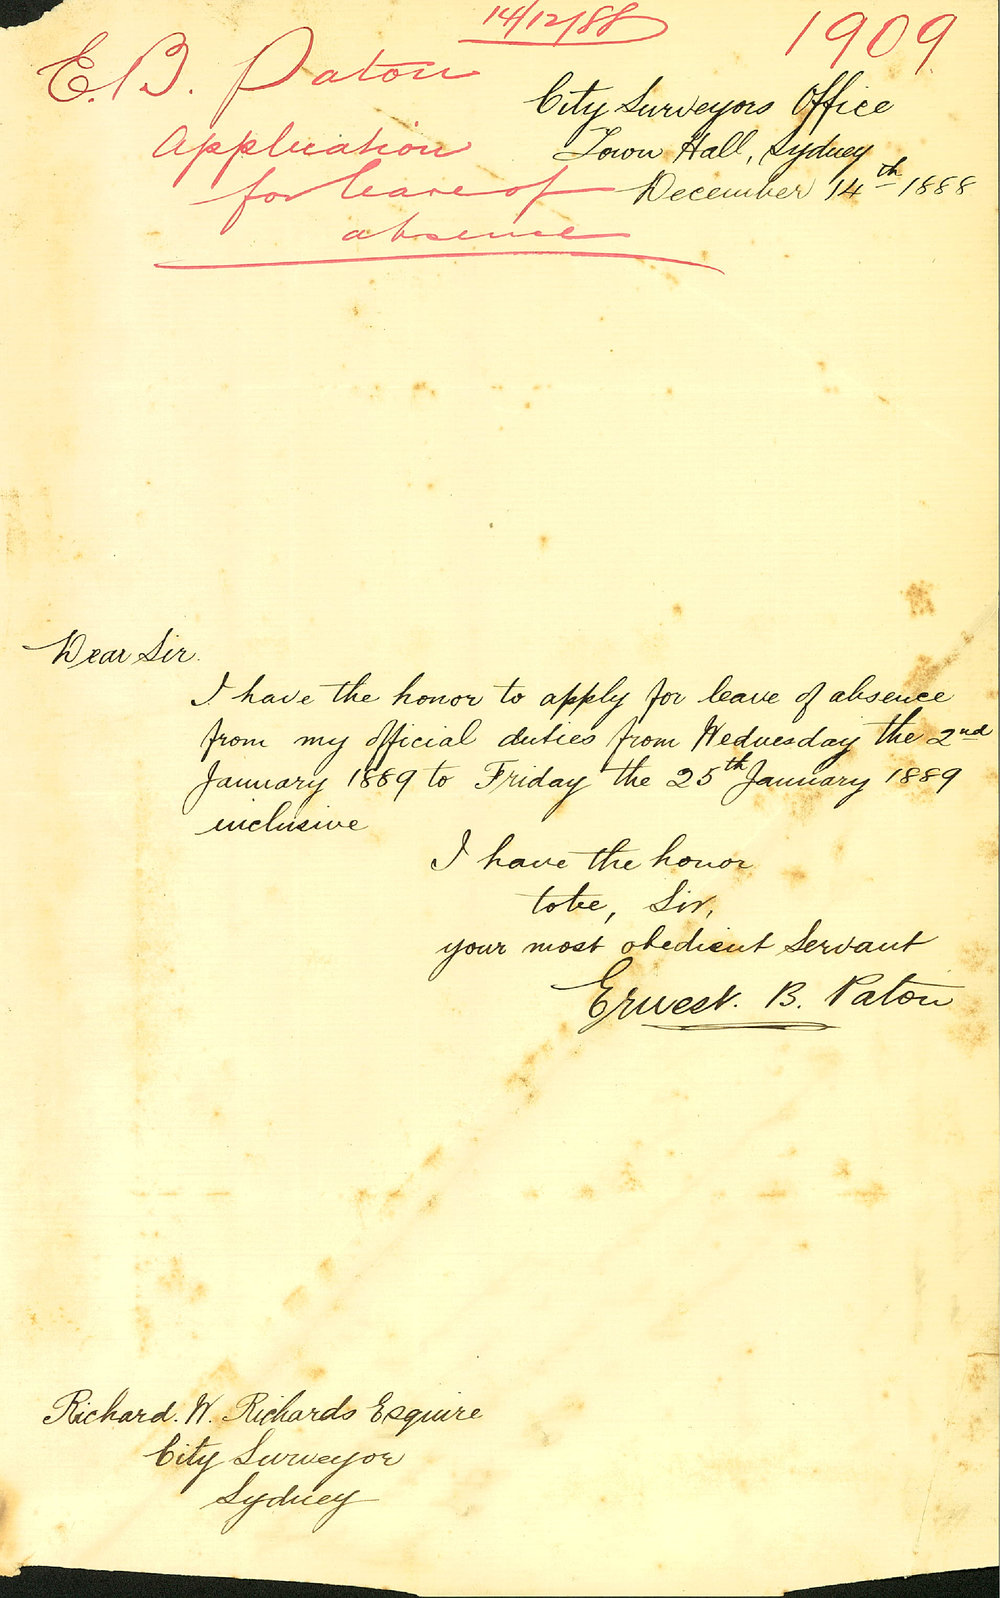 14/12/88
1909
E. B. Paton
Application
for leave of
absence
City Surveyors Office
Town Hall, Sydney
December 14th 1888
Dear Sir.
I have the honor to apply for leave of absence
from my official duties from Wednesday the 2nd
January 1889 to Friday the 25th January 1889
inclusive
I have the honor
to be, Sir,
your most obedient Servant
Ernest. B. Paton
Richard. W. Richards Esquire
City Surveyor
Sydney